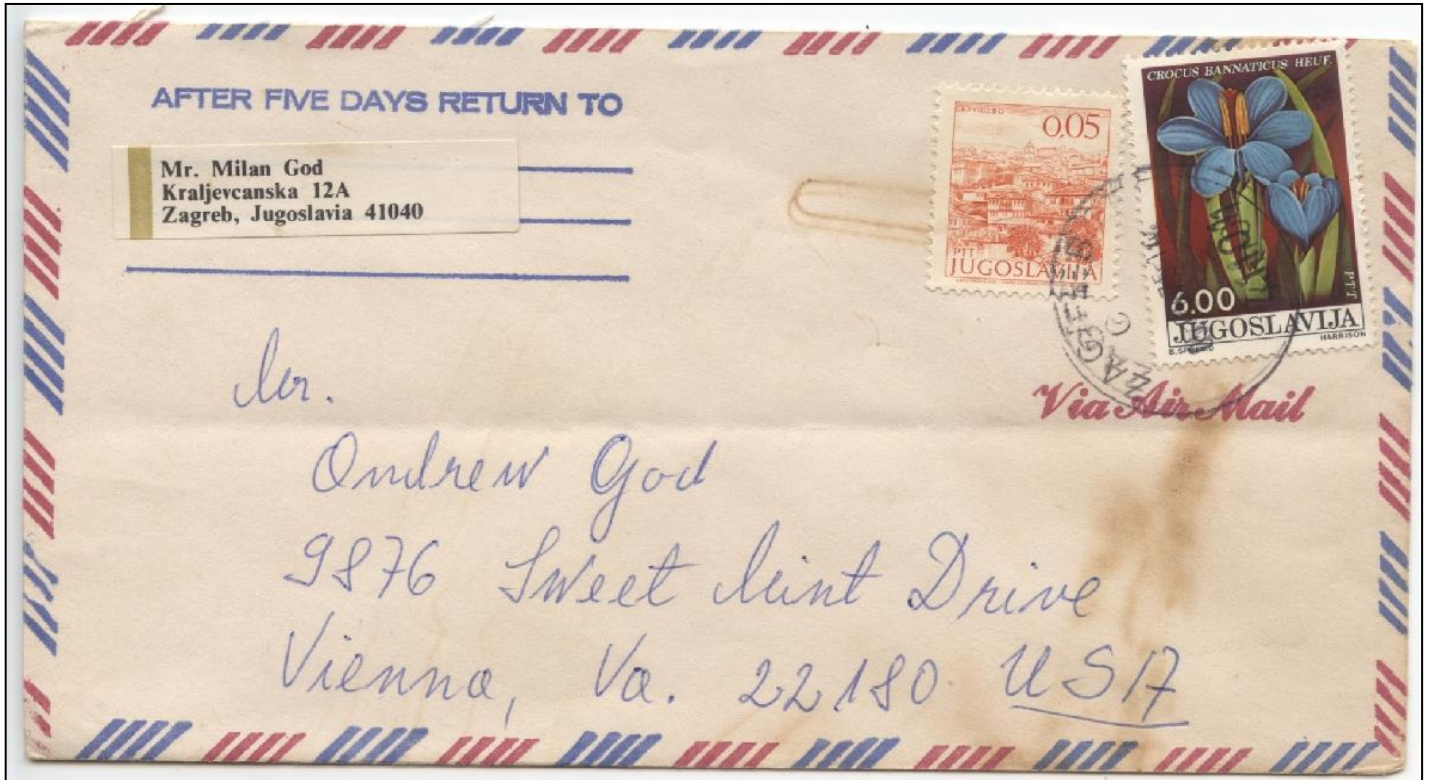 AFTER FIVE DAYS RETURN TO
Mr. Milan God
Kraljevcanska 12A
Zagreb, Jugoslavia 41040
0,05
PTT
JUGOSLAVIJA
CROCUS BANNATICUS HEUF.
6.00
PTT
JUGOSLAVIJA
HARRISON
ZAGREB
Via Air Mail
Mr.
Andrew God
9876 Sweet Mint Drive
Vienna, Va. 22180 USA